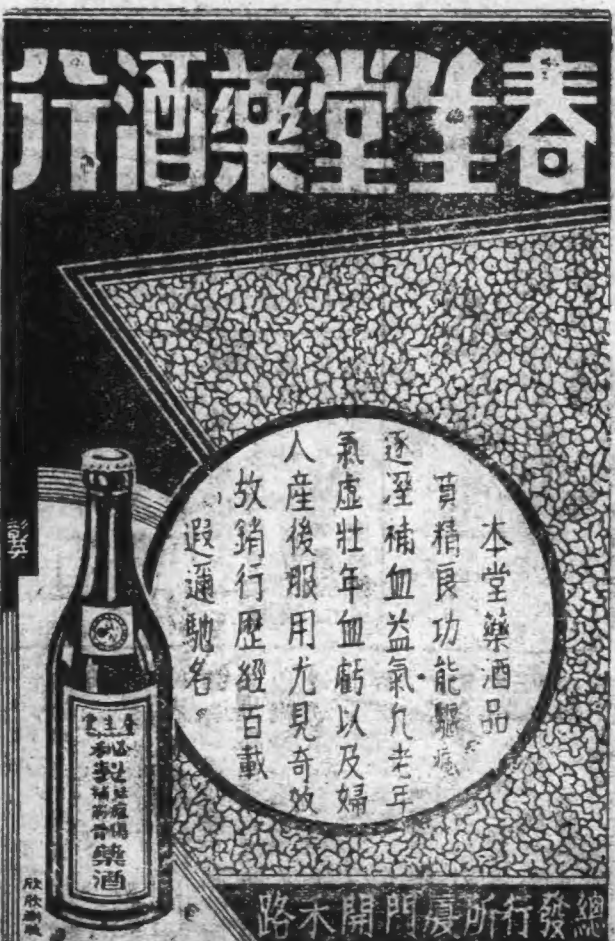 春生堂藥酒行
本堂藥酒品
質精良功能驅瘋
逐溼補血益氣凡老年
氣虛壯年血虧以及婦
人產後服用尤見奇效
故銷行歷經百載
遐邇馳名。
春生堂
藥酒
總發行所廈門開禾路